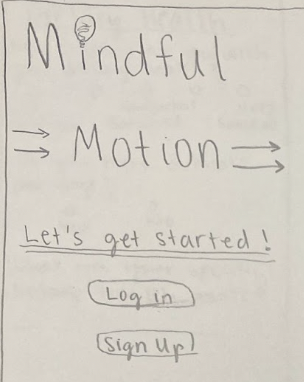 Mindful
Motion
Let's get started!
Log in
Sign Up